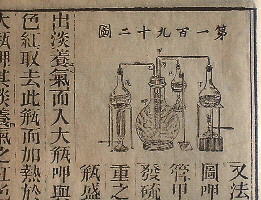 第一百九十二圖
又法
圖呷
管甲
發硫
重之
瓶盛
出淡養氣而入大瓶呷與
色紅取去此瓶而加熱於
大瓶呷其淡養氣之紅色